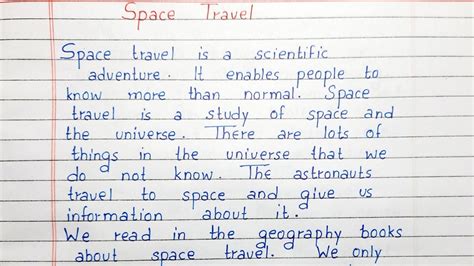 Space Travel
Space travel is a scientific
adventure. It enables people to
know more than normal. Space
travel is a study of space and
the universe. There are lots of
things in the universe that we
do not know. The astronauts
travel to space and give us
information about it.
We read in the geography books
about space travel. We only